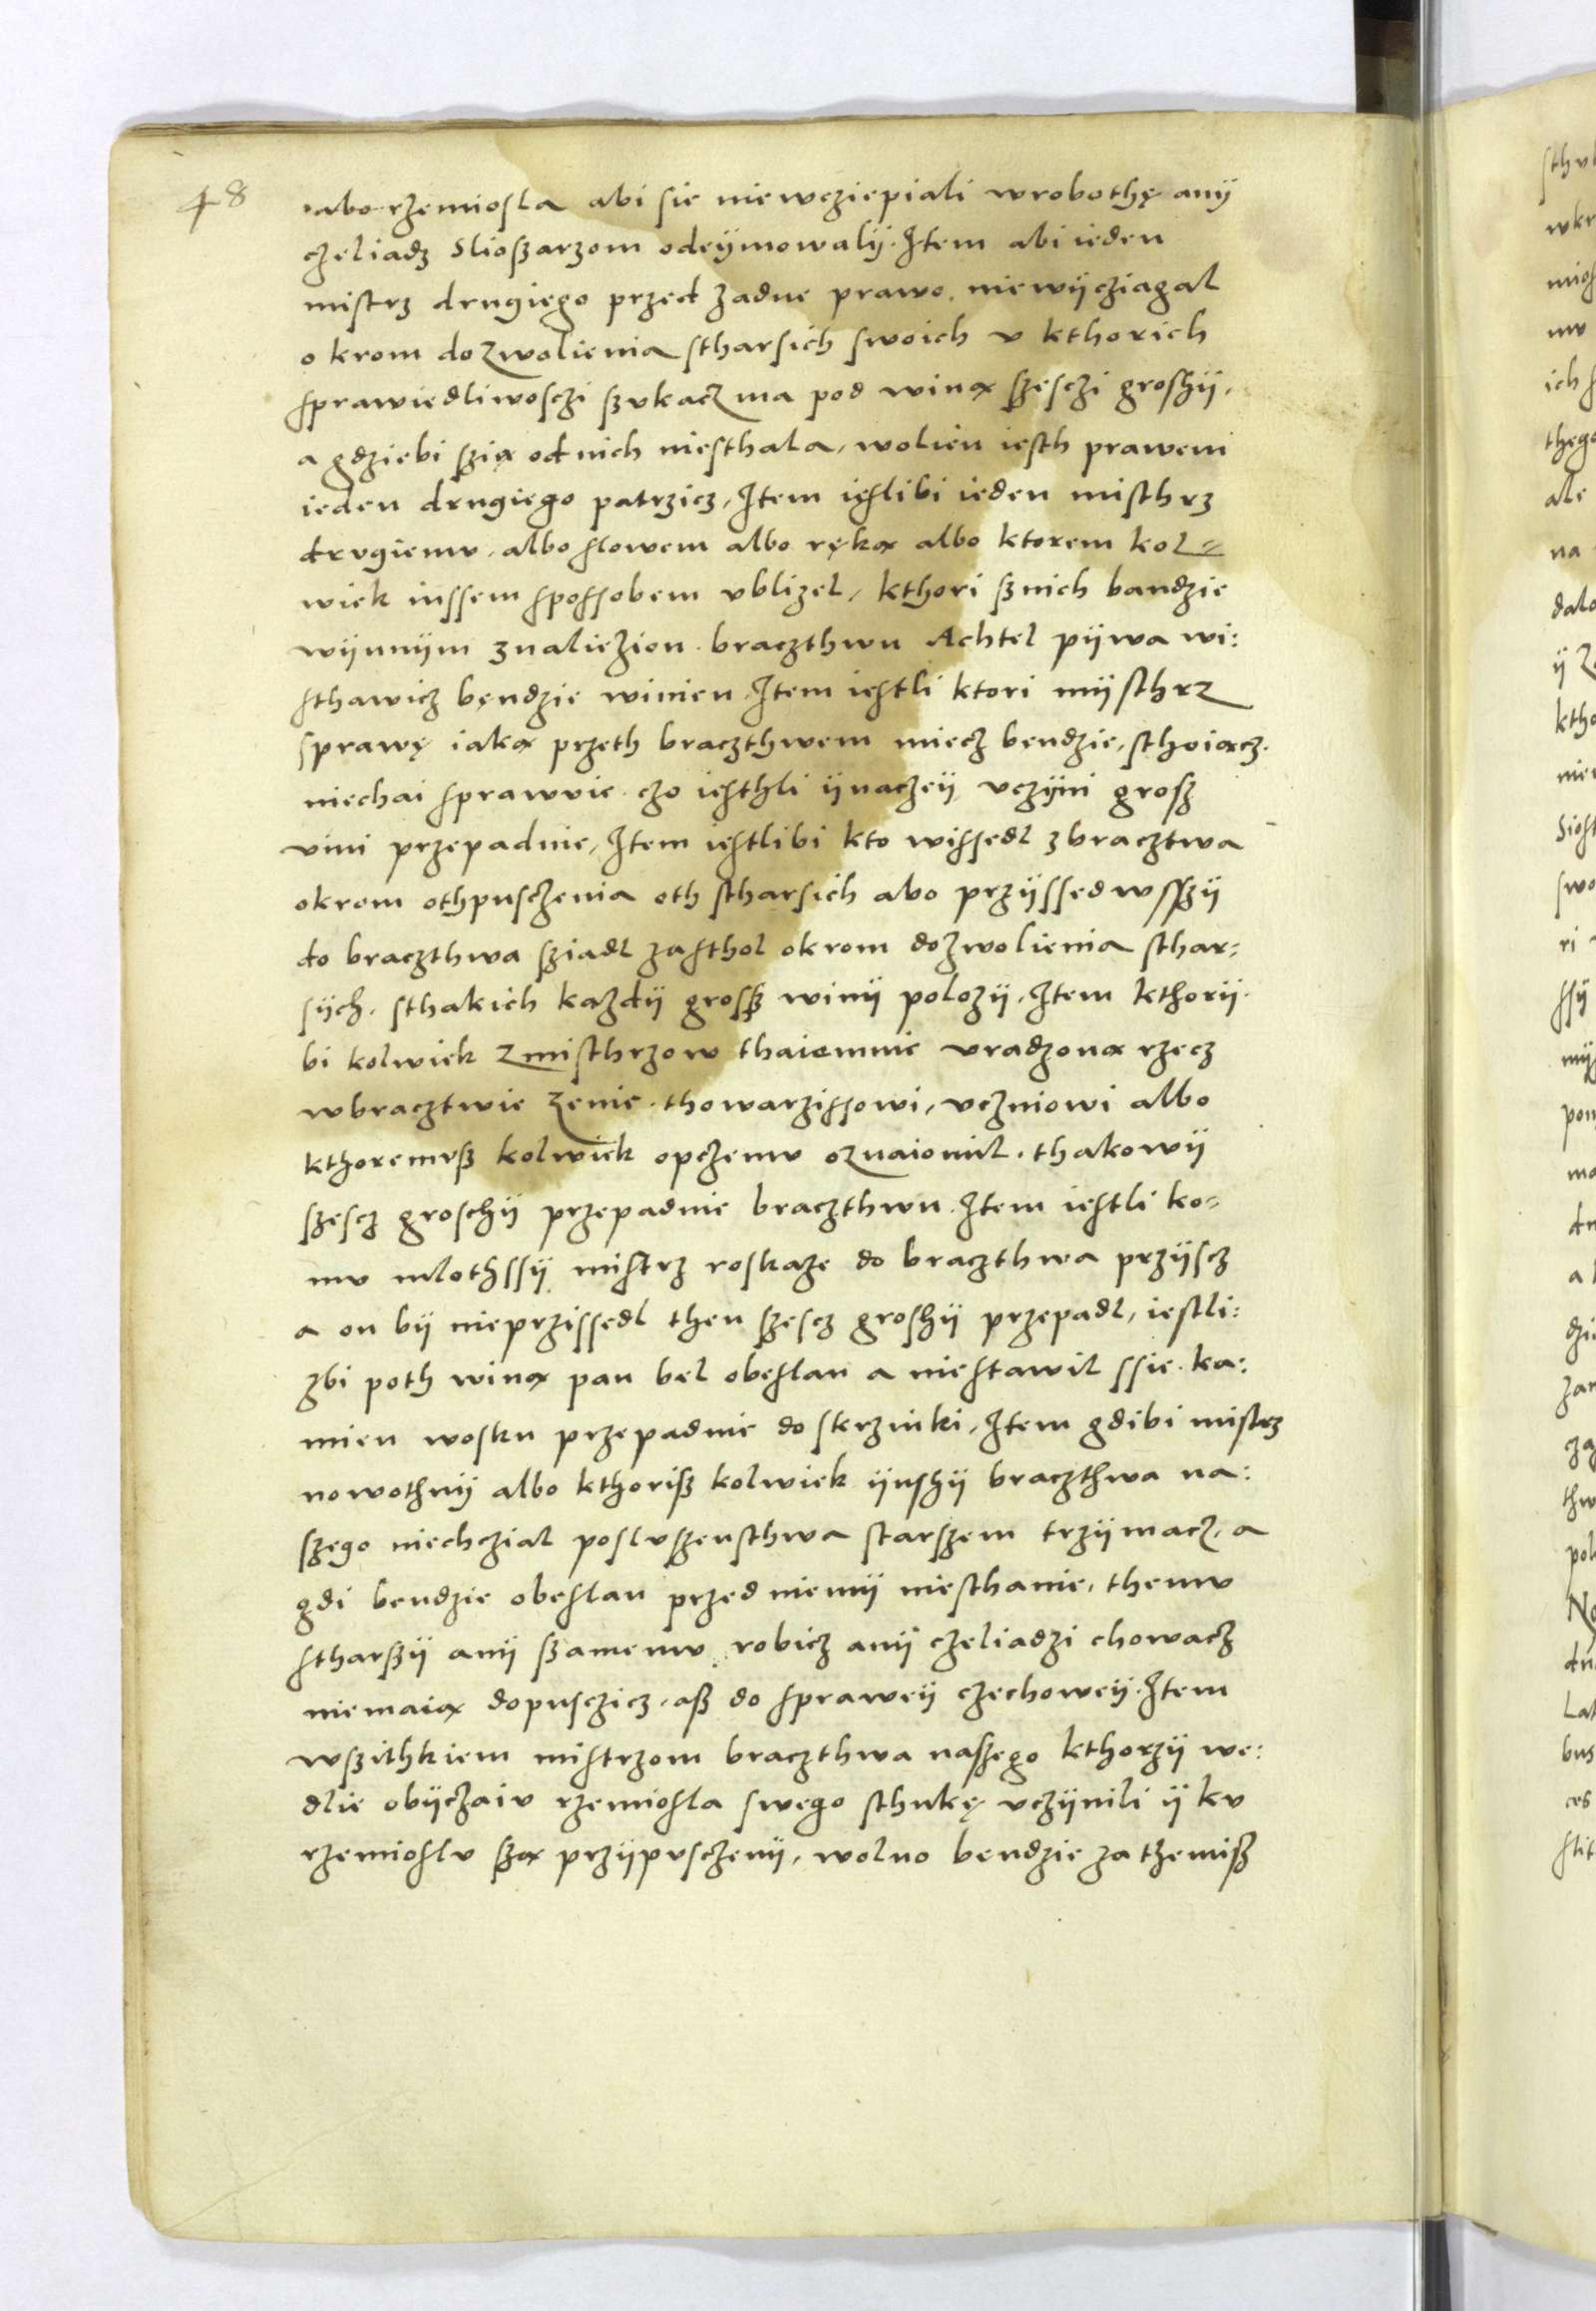 48
abo rzemiosla abi sie niewcziepiali wrobothę anÿ
czeliadz Slioszarzom odeÿmowalÿ. Item abi ieden
mistrz drugiego przed zadne prawo niewÿcziagal
okrom dozwolienia stharsich swoich v kthorich
sprawiedliwosczi szvkacz ma pod winą szesczi groszÿ,
a gdziebi szią odnich niesthala, wolien iesth prawem
ieden drugiego patrzicz, Item ieslibi ieden misthrz
drvgiemv, albo slowem albo ręką albo ktorem kol=
wiek inssem sposobem vblizel, kthori sznich bandzie
wÿnnÿm znaliezion braczthwu Achtel pÿwa wi:
sthawicz bęndzie winien. Item iestli ktori mÿsthrz
sprawę iaką przeth braczthwem miecz bendzie, sthoiącz
niechai sprawvie czo iesthli ÿnaczeÿ vczÿni grosz
vini przepadnie, Item iestlibi kto wissedl zbracztwa
okrom othpusczenia oth stharsich abo przÿssedwsszÿ
do braczthwa sziadl zasthol okrom dozwolienia sthar=
sÿch. sthakich kazdÿ grossz winÿ polozÿ. Item kthorÿ
bi kolwiek zmisthrzow thaiemnie vradzoną rzecz
wbracztwie zenie thowarzissowi, vczniowi albo
kthoremvsz kolwiek opczemv oznaiomil. thakowÿ
szescz groschÿ przepadnie braczthwu. Item iestli ko=
mv mlothssÿ mistrz roskaze do braczthwa przÿscz
a on bÿ nieprzissedl then szescz groszÿ przepadl, iestli:
zbi poth winą pan bel obeslan a niestawil ssie ka:
mien wosku przepadnie do skrzinki, Item gdibi mistrz
nowothnÿ albo kthorisz kolwiek ÿnszÿ braczthwa na:
szego niechczial poslvszensthwa starszem trzÿmacz, a
gdi bendzie obeslan przed niemÿ niesthanie, themv
stharszÿ anÿ szamemv robicz anÿ czeliadzi chowacz
niemaią dopusczicz. asz do spraweÿ czechoweÿ. Item
wszithkiem mistrzom braczthwa naszego kthorzÿ we:
dlie obÿczaiv rzemiosla swego sthukę vczÿnili ÿ kv
rzemioslv szą przÿpvsczenÿ, wolno bendzie za tzemisz